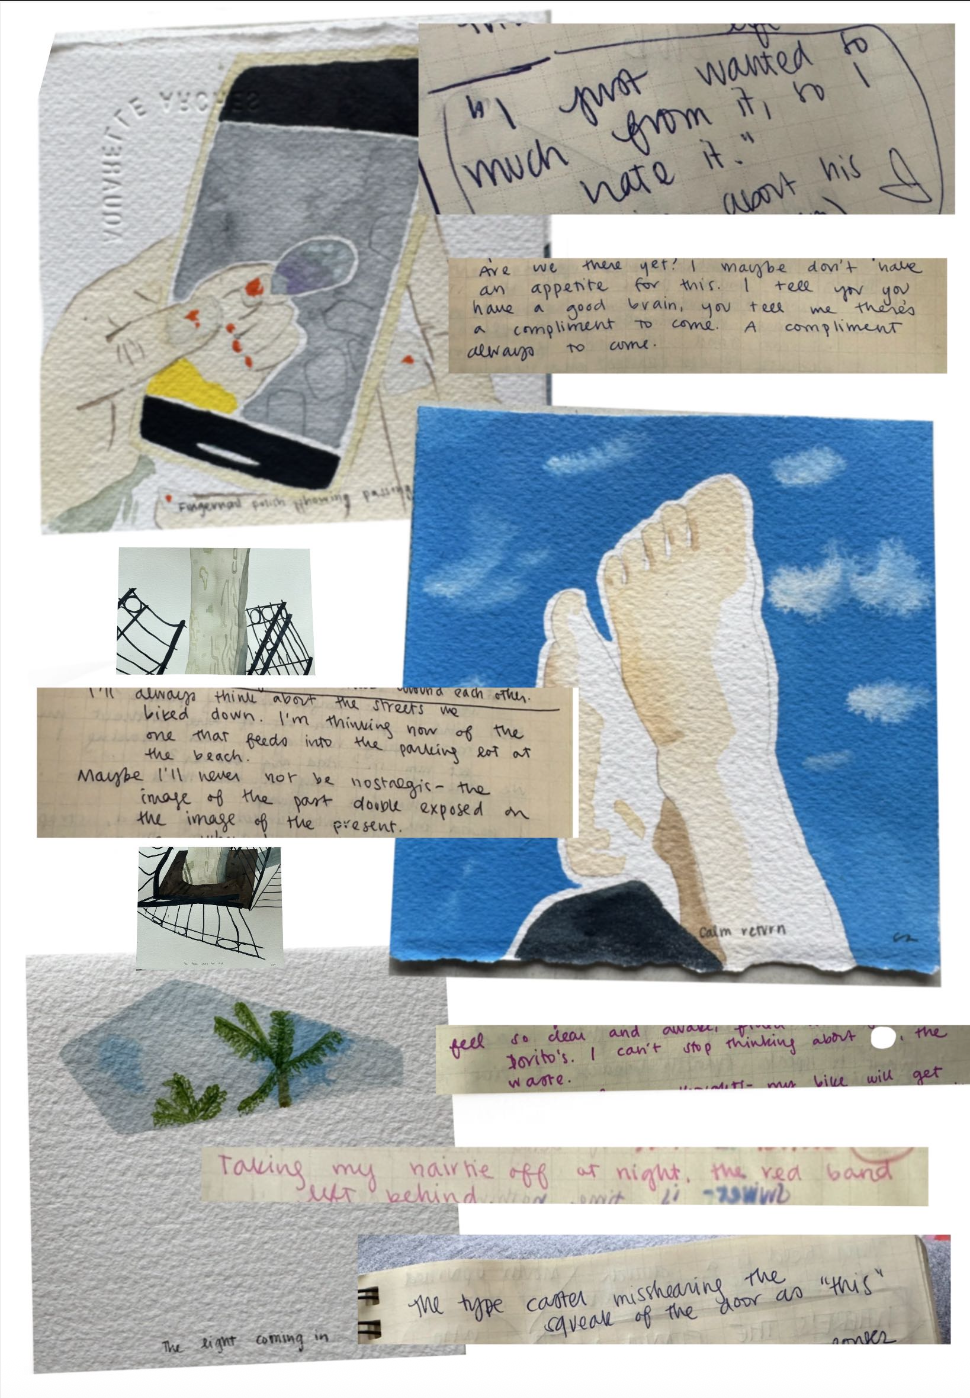 "I just wanted so
much from it, so I
hate it."
about his
Are we there yet? I maybe don't have
an appetite for this. I tell you you
have a good brain, you tell me there's
a compliment to come. A compliment
always to come.
Fingernail polish
around each other.
I'll always think about the streets we
biked down. I'm thinking now of the
one that feeds into the parking lot at
the beach.
Maybe I'll never not be nostalgic- the
image of the past double exposed on
the image of the present.
Calm return
feel so clear and awake,
Dorito's. I can't stop thinking about , the
waste.
my bike will get
Taking my hairtie off at night, the red band
left behind
The type caster misshearing the
squeak of the door as "this"
The light coming in